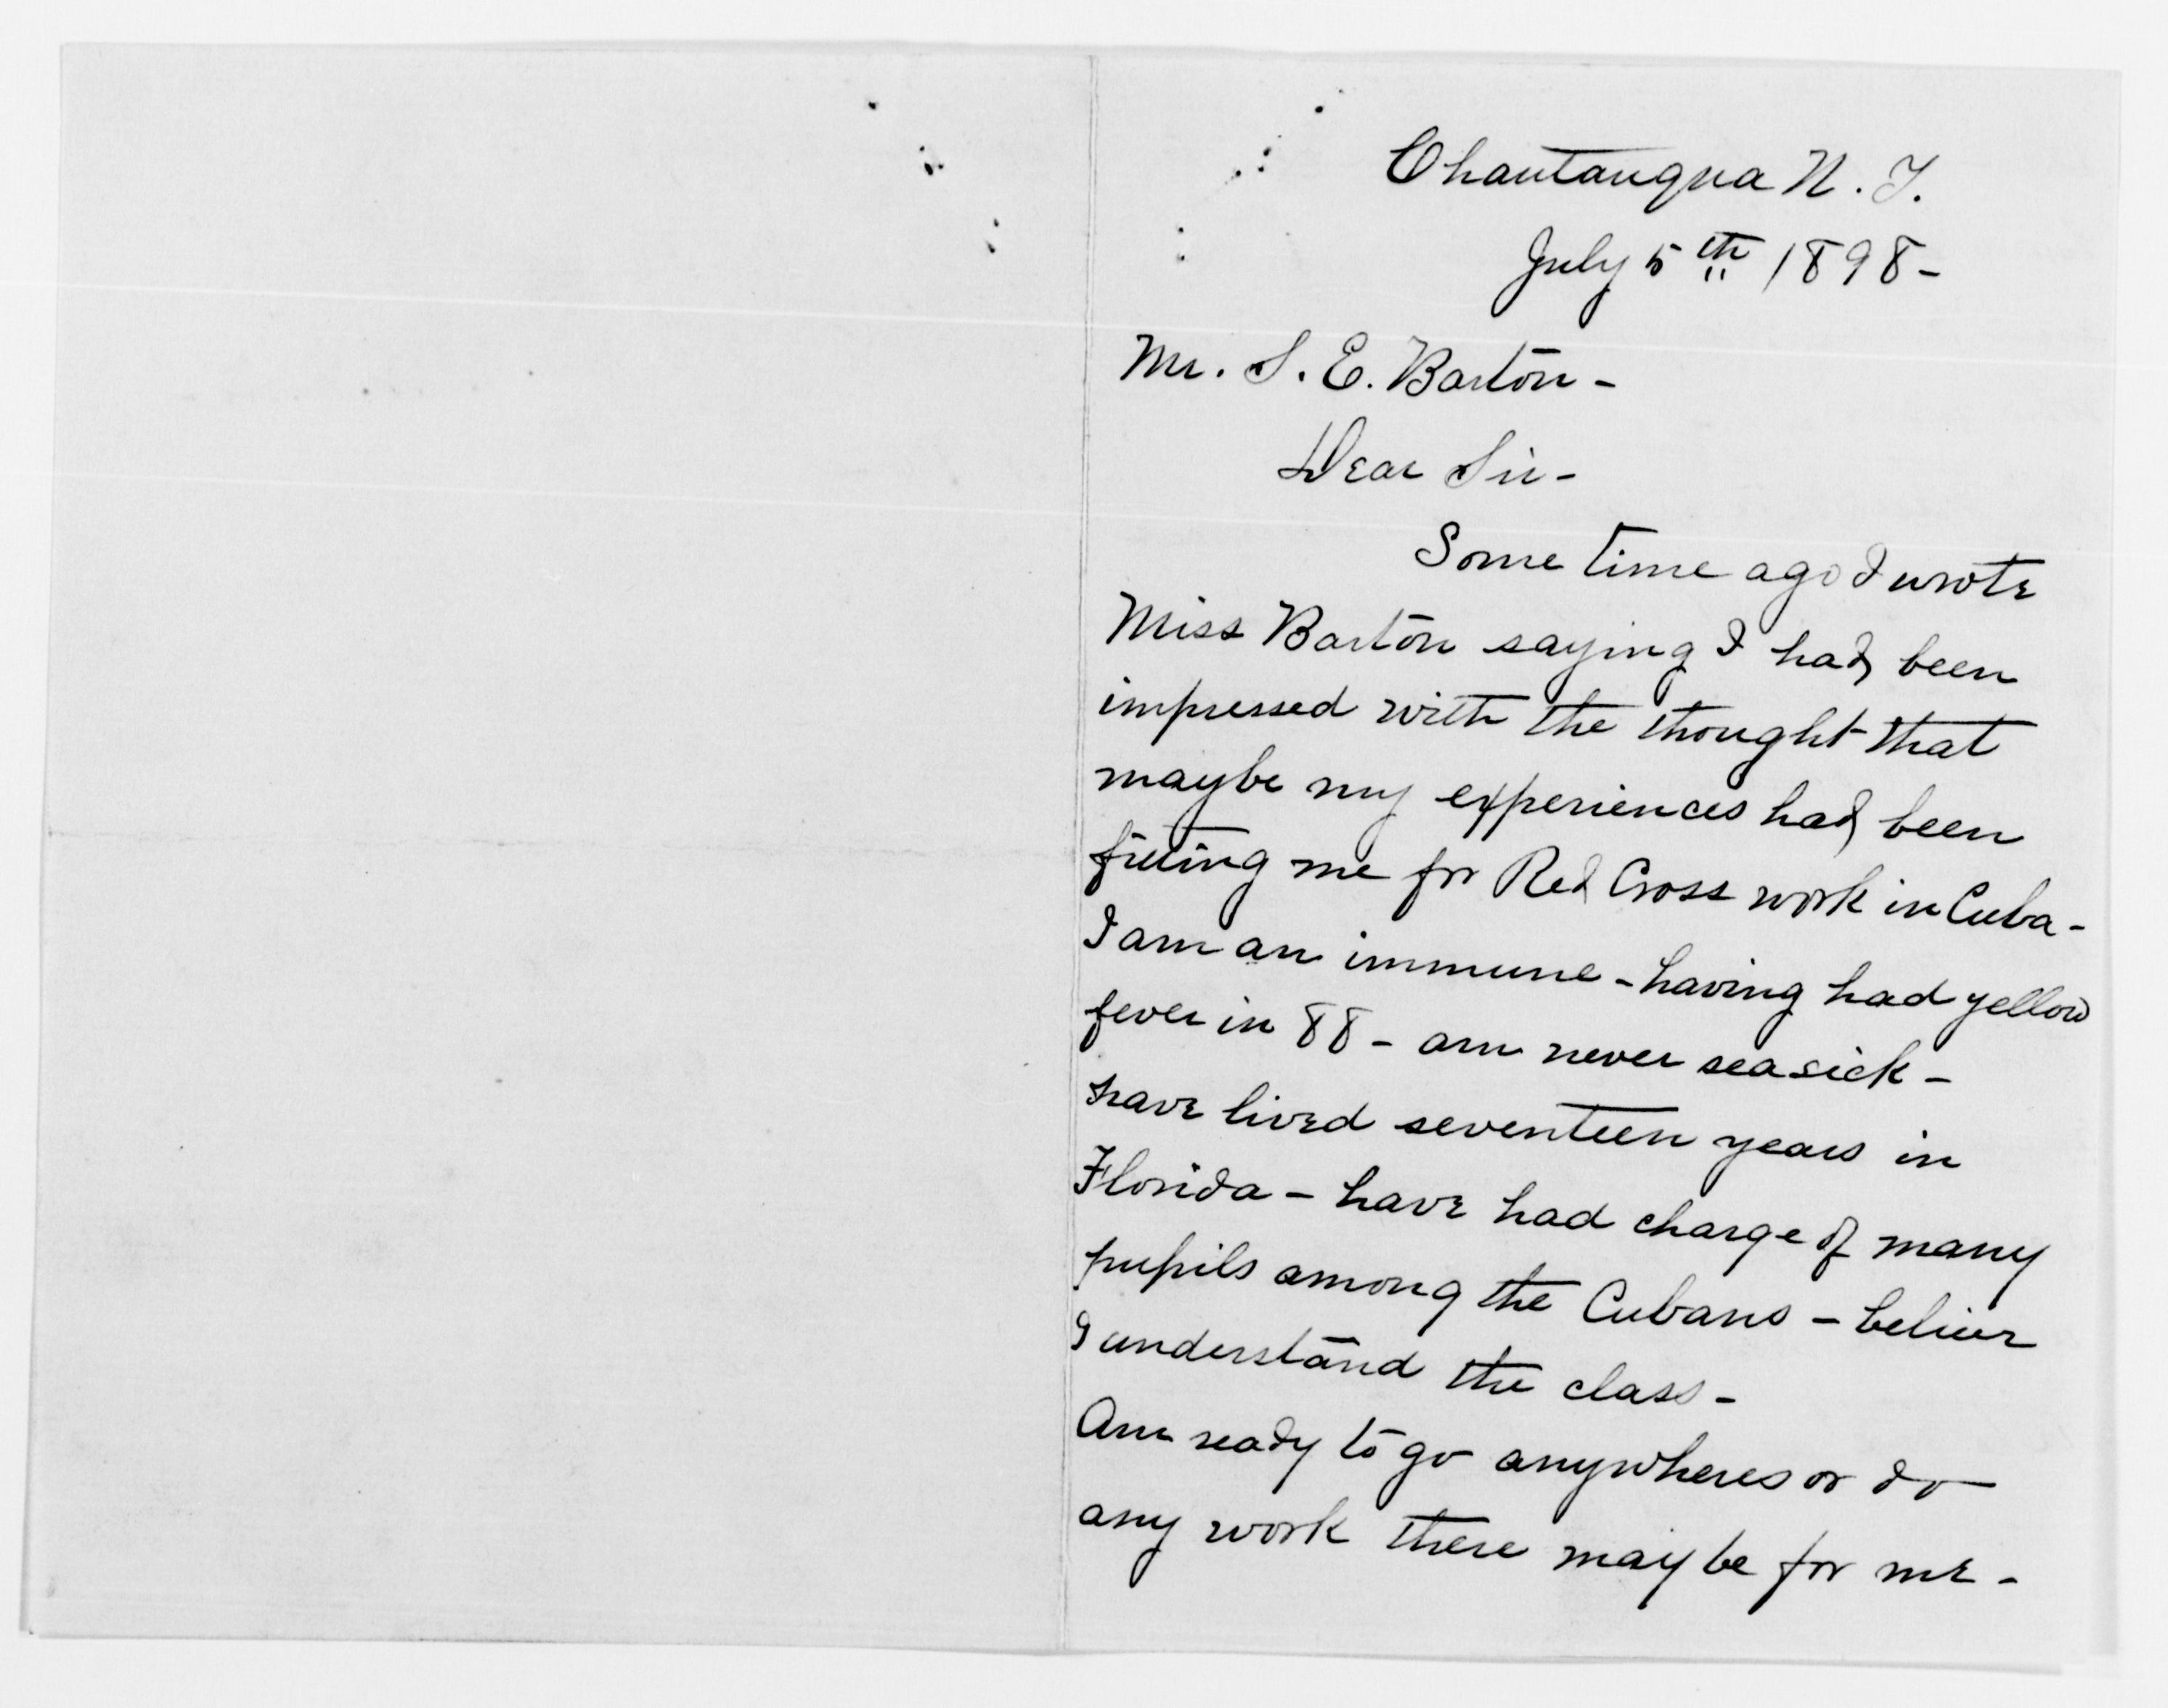 Chautauqua N. Y.
July 5th 1898-
Mr. S. E. Barton-
Dear Sir-
Some time ago I wrote
Miss Barton saying I had been
impressed with the thought that
maybe my experiences had been
fitting me for Red Cross work in Cuba-
I am an immune - having had yellow
fever in 88 - am never seasick -
have lived seventeen years in
Florida - have had charge of many
pupils among the Cubans - believe
I understand the class -
Am ready to go anywheres or do
any work there may be for me -